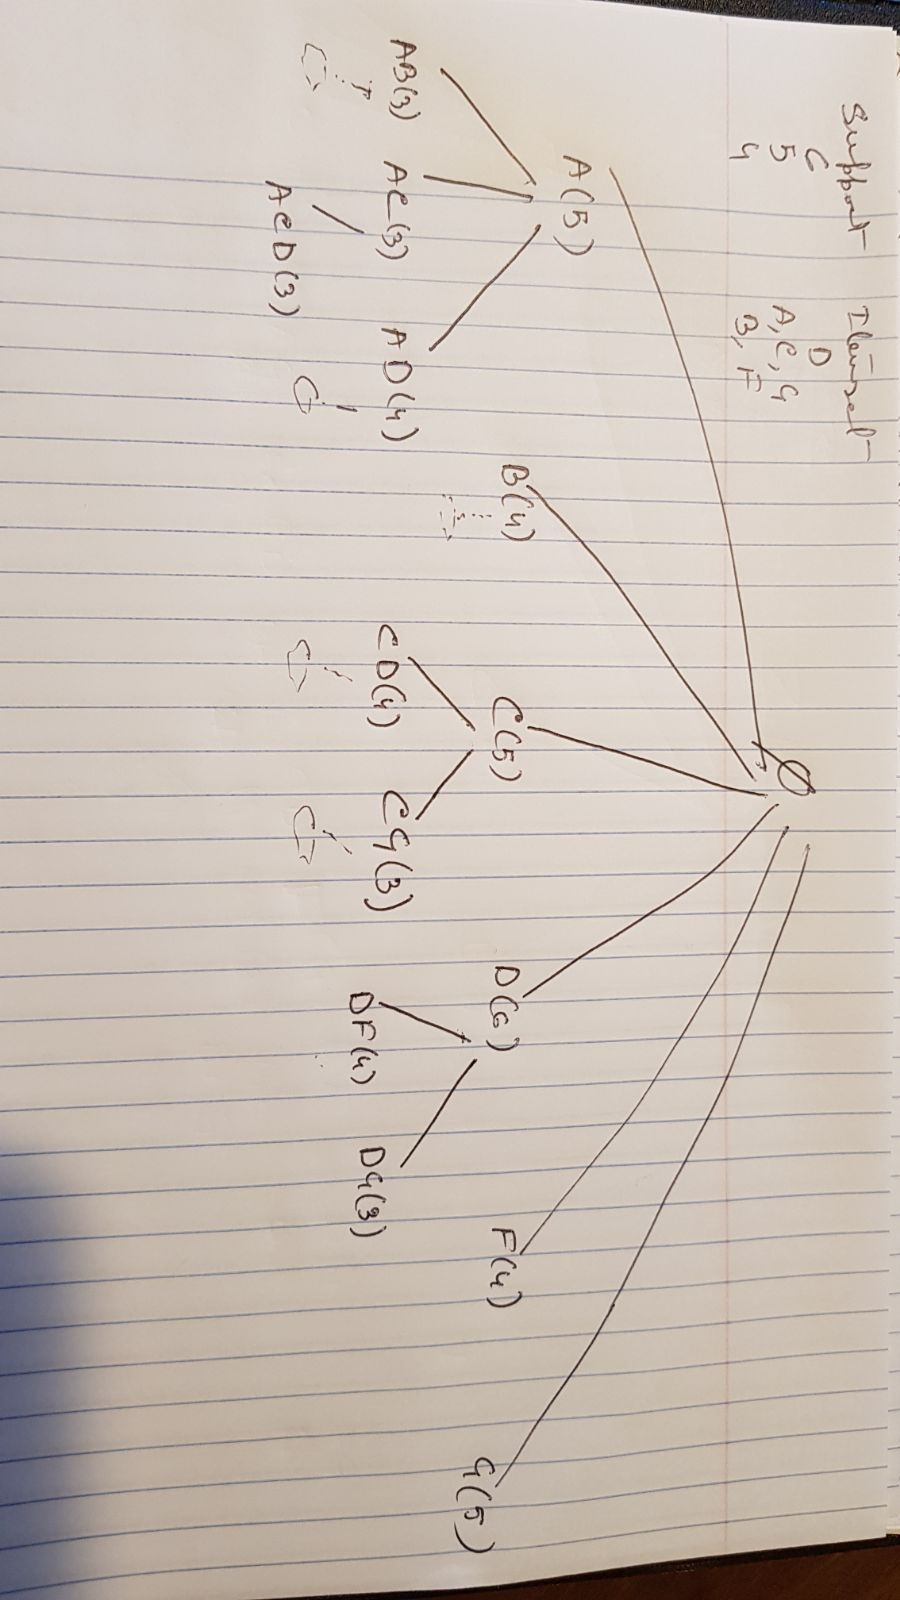 Support Itemset
6 D
5 A, C, G
4 B, F
Ø
A(5) B(4) C(5) D(6) F(4) G(5)
AB(3) AC(3) AD(4) CD(4) CG(3) DF(4) DG(3)
ACD(3)